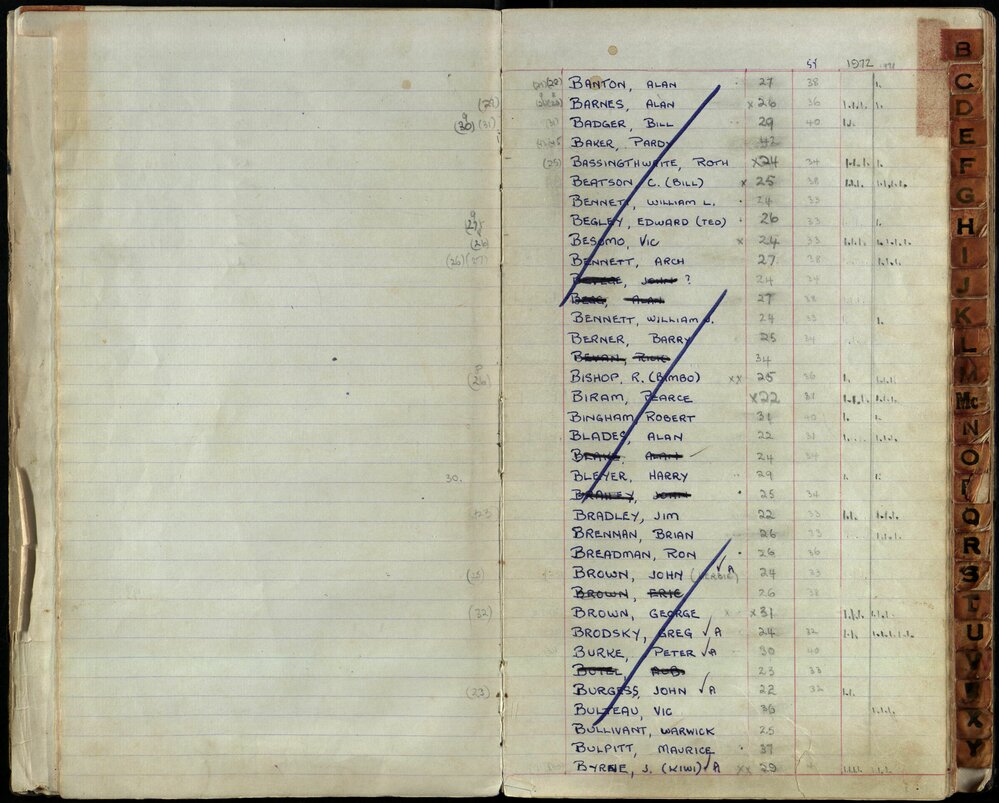 54 1972
BANTON, ALAN 27 38
(29) BARNES, ALAN x 26 36
(30) (31) BADGER, BILL 29 40
BAKER, PARDY 42
(25) BASSINGTHWAITE, ROTH x24 34
BEATSON C. (BILL) x 25 38
BENNETT, WILLIAM L. 24 33
BEGLEY, EDWARD (TED) 26 33
(26) BESOMO, VIC x 24 33
(26) BENNETT, ARCH 27 38
JOHN ? 24 34
BERG, ALAN 27 38
BENNETT, WILLIAM J. 24 33
BERNER, BARRY 25 34
BEVAN, RICK 34
(26) BISHOP, R. (BIMBO) xx 25 36
BIRAM, PEARCE x22 31
BINGHAM, ROBERT 31 40
BLADES, ALAN 22 31
BLAKE, ALAN 24 34
30. BLEYER, HARRY 29
BRAILEY, JOHN 25 34
23 BRADLEY, JIM 22 33
BRENNAN, BRIAN 26 33
BREADMAN, RON 26 36
(25) BROWN, JOHN √A 24 33
BROWN, ERIC 26 38
(32) BROWN, GEORGE x 31
BRODSKY, GREG √A 24 32
BURKE, PETER √A 30 40
BUTEL, ROB 23 33
(23) BURGESS, JOHN √A 22 32
BULTEAU, VIC 36
BULLIVANT, WARWICK 25
BULPITT, MAURICE 37
BYRNE, J. (KIWI) √A xx 29
B
C
D
E
F
G
H
I
J
K
L
M
Mc
N
O
P
Q
R
S
T
U
V
X
Y